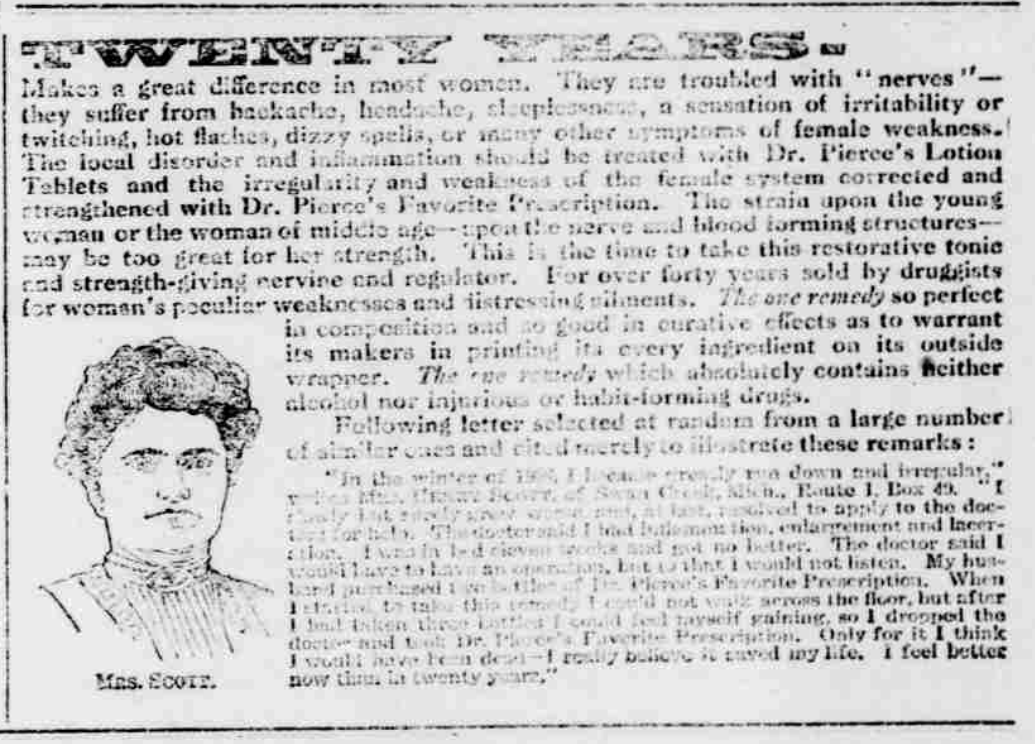 TWENTY YEARS.
Makes a great difference in most women. They are troubled with "nerves"—
they suffer from backache, headache, sleeplessness, a sensation of irritability or
twitching, hot flashes, dizzy spells, or many other symptoms of female weakness.
The local disorder and inflammation should be treated with Dr. Pierce's Lotion
Tablets and the irregularity and weakness of the female system corrected and
strengthened with Dr. Pierce's Favorite Prescription. The strain upon the young
woman or the woman of middle age—upon the nerve and blood forming structures—
may be too great for her strength. This is the time to take this restorative tonic
and strength-giving nervine and regulator. For over forty years sold by druggists
for woman's peculiar weaknesses and distressing ailments. The one remedy so perfect
in composition and so good in curative effects as to warrant
its makers in printing its every ingredient on its outside
wrapper. The one remedy which absolutely contains neither
alcohol nor injurious or habit-forming drugs.
Following letter selected at random from a large number
of similar ones and cited merely to illustrate these remarks:
"In the winter of I became greatly run down and irregular,"
writes Mrs. Henry Scott, of Swan Creek, Mich., Route 1, Box 49. "I
slowly but surely grew worse and, at last, resolved to apply to the doc-
tors for help. The doctor said I had inflammation, enlargement and lacer-
ation. I was in bed eleven weeks and got no better. The doctor said I
would have to have an operation, but to that I would not listen. My hus-
band purchased two bottles of Dr. Pierce's Favorite Prescription. When
I started to take this remedy I could not walk across the floor, but after
I had taken three bottles I could feel myself gaining, so I dropped the
doctor and took Dr. Pierce's Favorite Prescription. Only for it I think
I would have been dead—I really believe it saved my life. I feel better
now than in twenty years."
MRS. SCOTT.